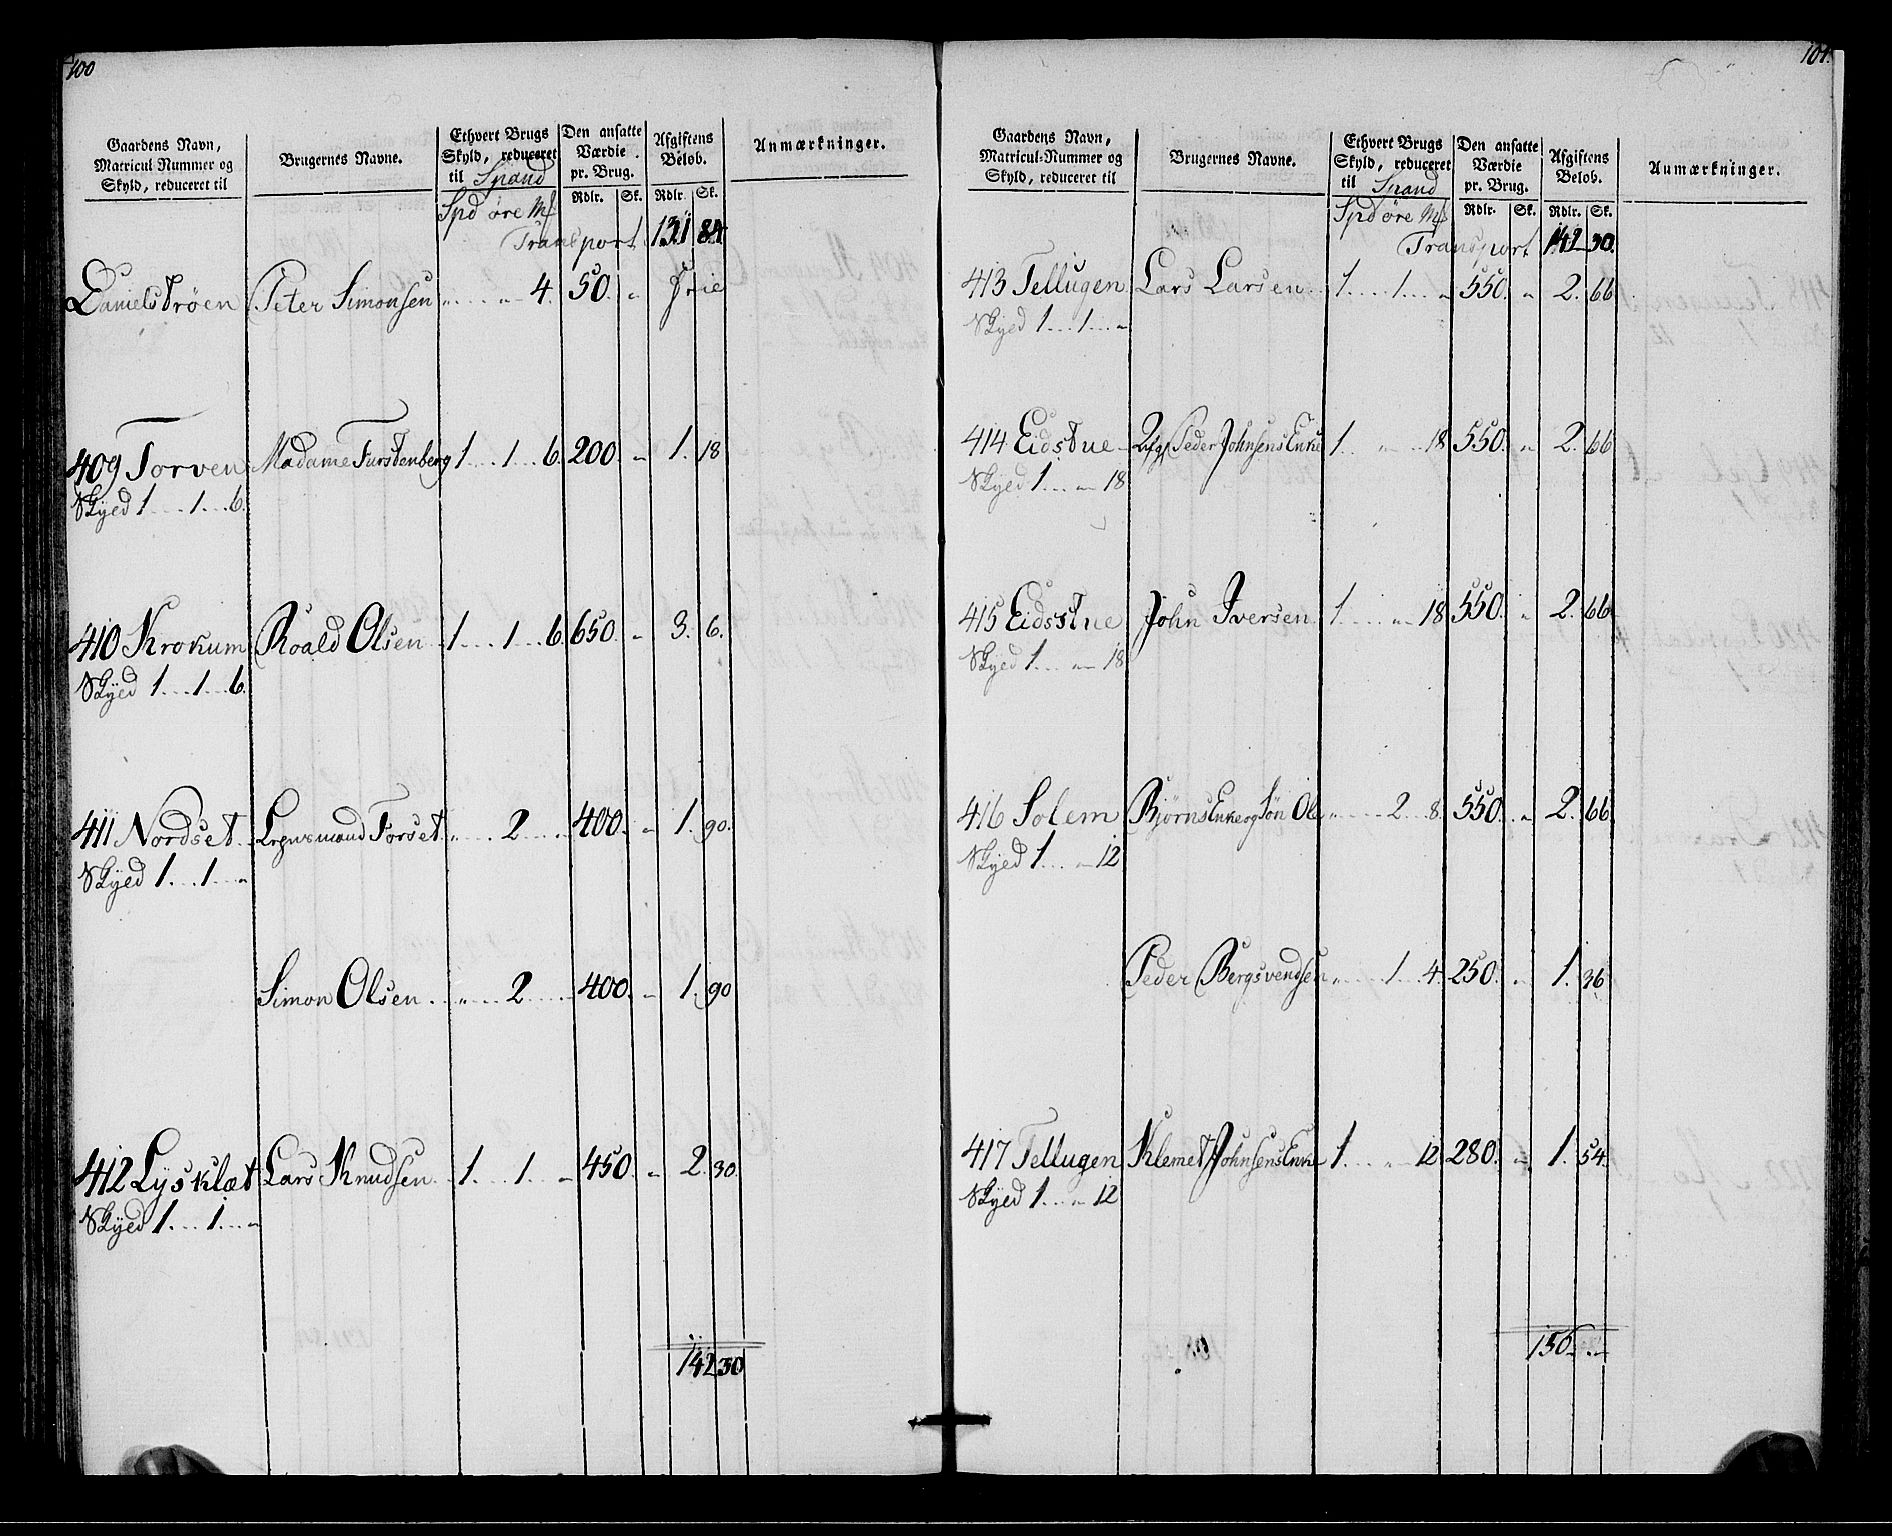 100
Gaardens Navn, Matricul-Nummer og Skyld, reduceret til | Brugernes Navne. | Ethvert Brugs Skyld, reduceret til Spand | Den ansatte Værdie pr. Brug. | Afgiftens Beløb. | Anmærkninger.
Spd øre Mk | Rdlr. | Sk. | Rdlr. | Sk.
Transport 131 84
Danielstrøen Peter Simonsen „ „ 4. 50. „ frie
409 Torven Madame Furstenberg 1 1 6. 200. „ 1. 18
Skyed 1 1 6.
410 Krokum Roald Olsen 1 1 6. 650. „ 3. 6.
Skyed 1 1 6.
411 Nordset Forset „ 2 400. „ 1. 90.
Skyed 1 1 „
Simon Olsen „ 2 400. „ 1. 90
412 Lysklæt Lars Knudsen 1. 1. „ 450. „ 2. 30.
Skyed 1 1 „
142 30
101.
Gaardens Navn, Matricul-Nummer og Skyld, reduceret til | Brugernes Navne. | Ethvert Brugs Skyld, reduceret til Spand | Den ansatte Værdie pr. Brug. | Afgiftens Beløb. | Anmærkninger.
Spd øre Mk | Rdlr. | Sk. | Rdlr. | Sk.
Transport 142 30.
413 Tellugen Lars Larsen 1 1 „ 550. „ 2. 66
Skyed 1 1 „
414 Eidstue Peder Johnsens Enke 1. „ 18 550. „ 2. 66
Skyed 1 „ 18
415 Eidsstue John Iversen 1 „ 18 550. „ 2. 66
Skyed 1 „ 18
416 Solem Bjørns Enke og Søn Ole „ 2 8. 550. „ 2. 66
Skyed 1 „ 12
Peder Bergsvendsen „ 1 4. 250. „ 1. 36
417 Tellugen Klemet Johnsens Enke 1. „ 12 280. „ 1. 54.
Skyed 1 „ 12
156 „